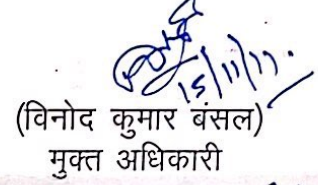 15/11/17.
(विनोद कुमार बंसल)
मुक्त अधिकारी